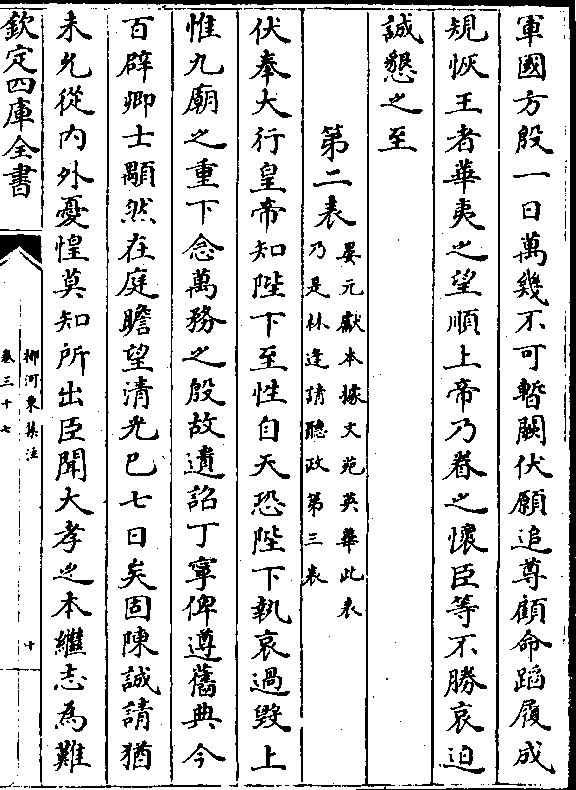 軍國方殷一日萬幾不可暫闕伏願追尊顧命蹈履成
規恢王者華夷之望順上帝乃眷之懷臣等不勝哀迫
誠懇之至
第二表晏元獻本據文苑英華此表
乃是林逢請聽政第三表
伏奉大行皇帝知陛下至性自天恐陛下執哀過毀上
惟九廟之重下念萬務之殷故遺詔丁寧俾遵舊典今
百辟卿士顒然在庭瞻望清光已七日矣固陳誠請猶
未允從內外憂惶莫知所出臣聞大孝之本繼志為難
欽定四庫全書
柳河東集注
卷三十七
十